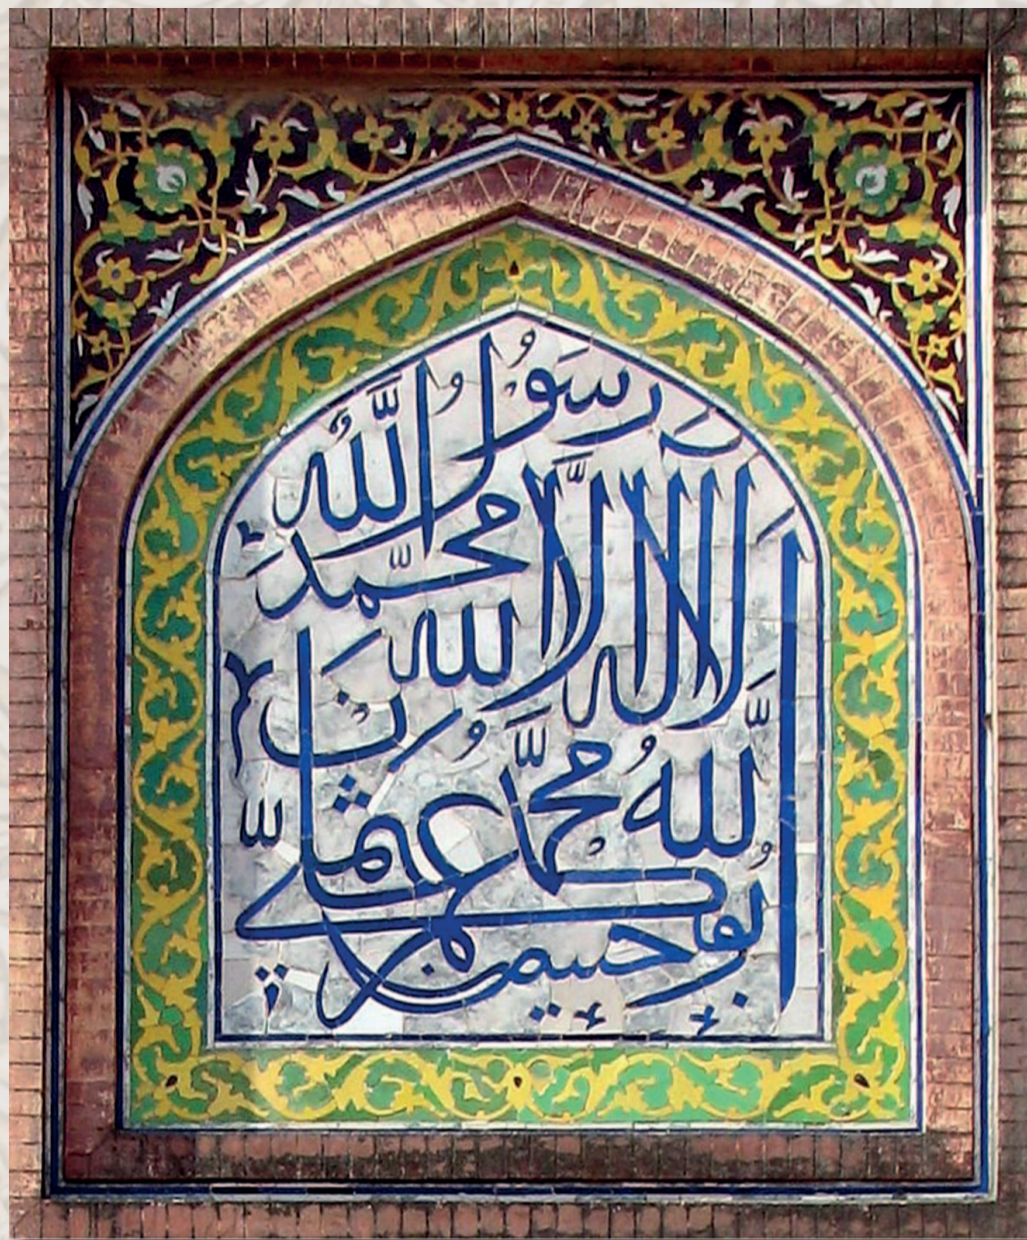 لا اله الا الله محمد
رَسُوْلُ اللّٰه
اللّٰهُ مُحَمَّد
ابُوبکر عمر عثمان علی